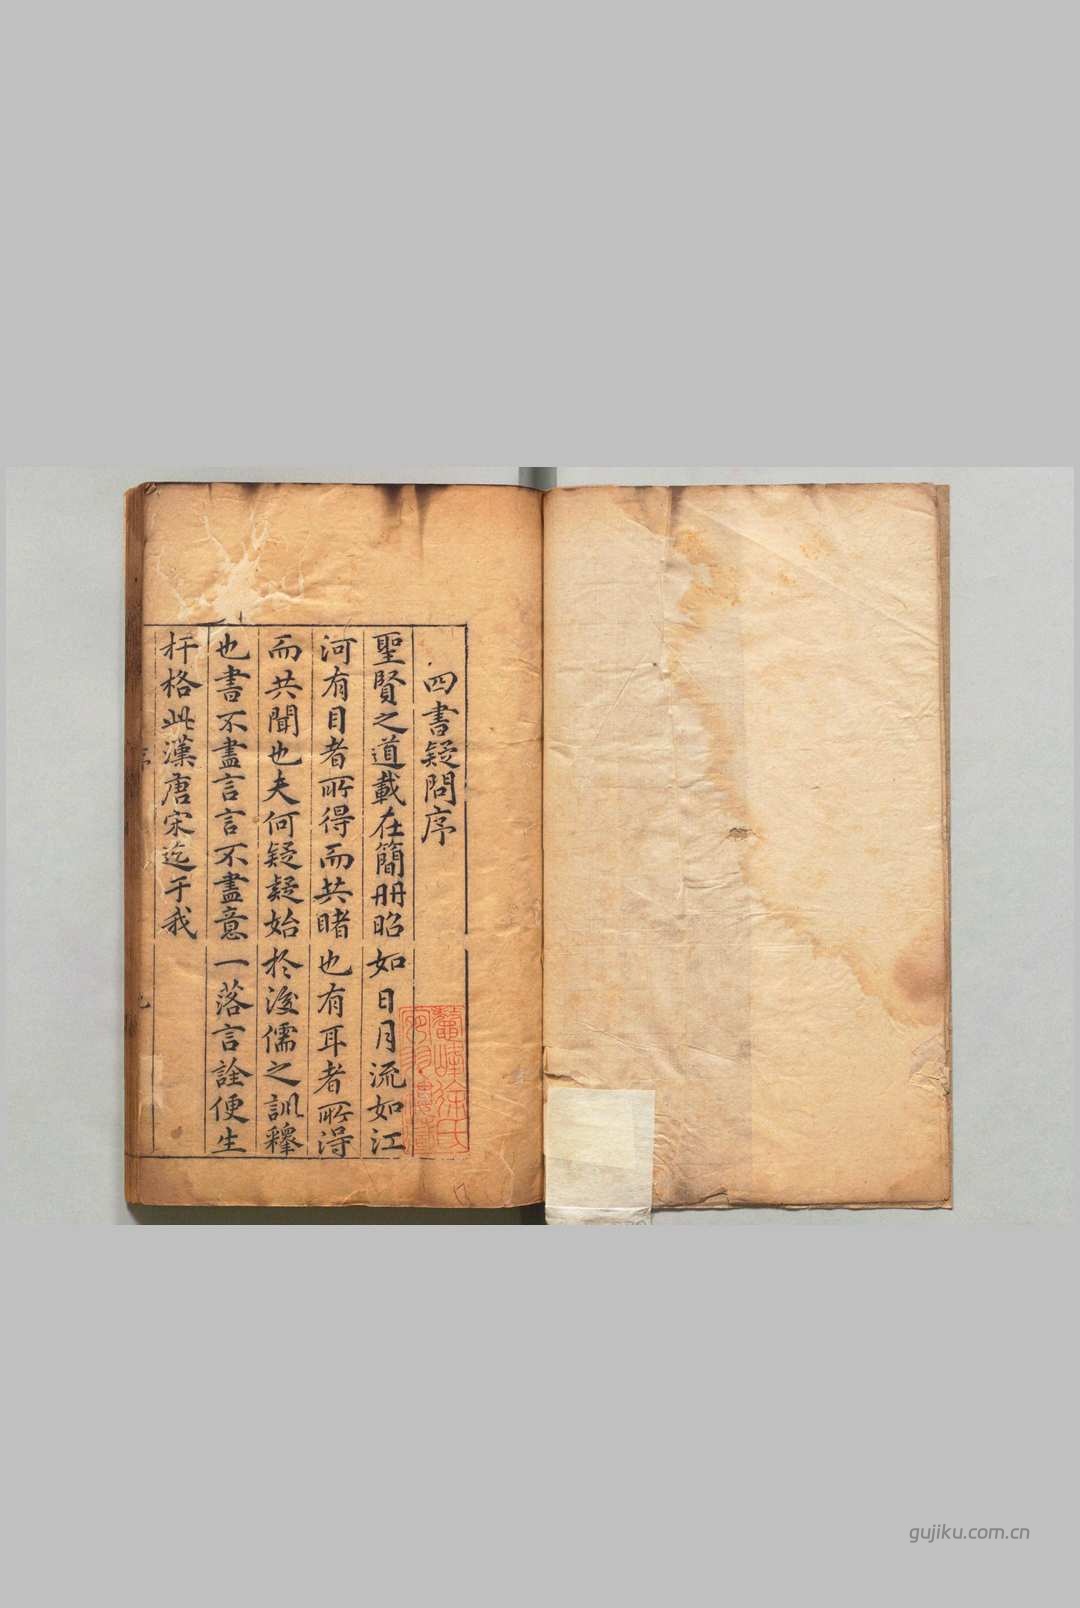 四書疑問序
聖賢之道載在簡册昭如日月流如江
河有目者所得而共睹也有耳者所得
而共聞也夫何疑疑始於後儒之訓釋
也書不盡言言不盡意一落言詮便生
扞格此漢唐宋迄于我
序
鼇峰徐氏
宛羽樓藏
gujiku.com.cn